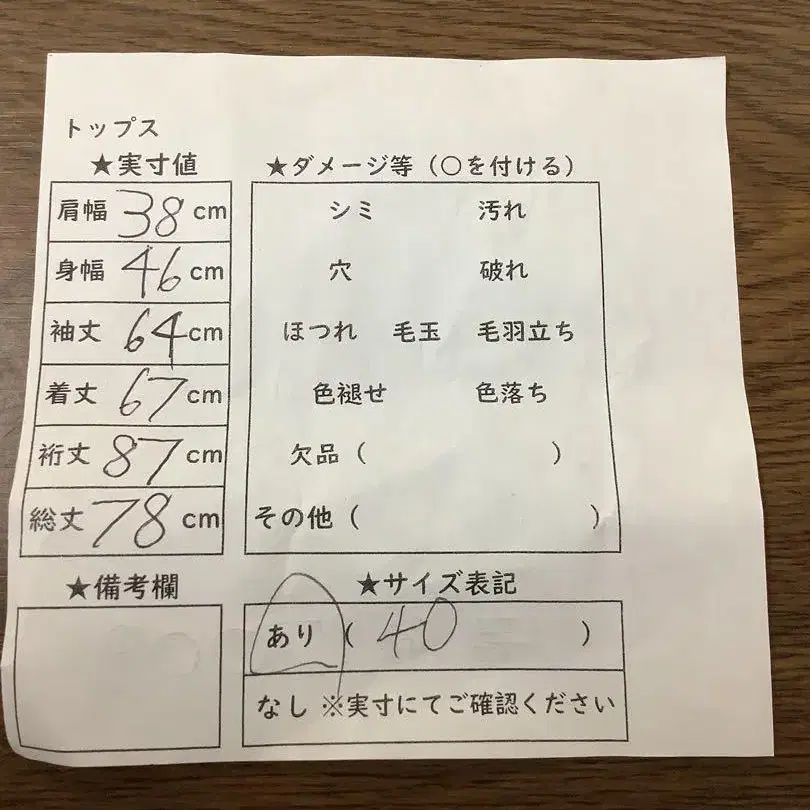 トップス
★実寸値
肩幅 38 cm
身幅 46 cm
袖丈 64 cm
着丈 67 cm
裄丈 87 cm
総丈 78 cm
★ダメージ等（○を付ける）
シミ 汚れ
穴 破れ
ほつれ 毛玉 毛羽立ち
色褪せ 色落ち
欠品（ ）
その他（ ）
★備考欄
★サイズ表記
あり（ 40 ）
なし ※実寸にてご確認ください